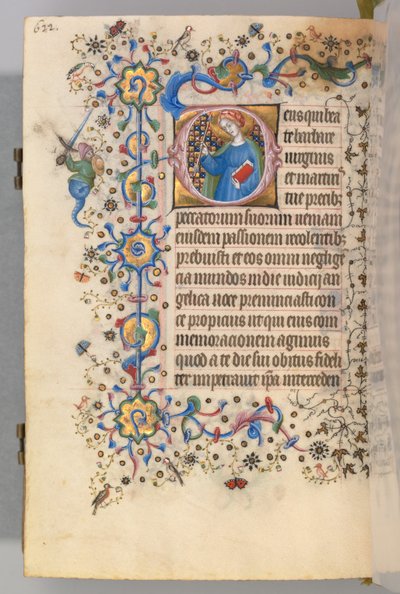 622.
eus qui bea
te barbare
uirginis
et martiri᷒
tue precib;
peccatorum suorum ueniam
eiusdem passionem recolentib;
prebuisti et eos omni neglige
cia mundos in die iudicij an
gelica uoce prenunciasti con
ce propicius ut qui eius com
memoracionem agimus
quod a te die sui obitus fideli
ter impetrauit ip̄a interceden